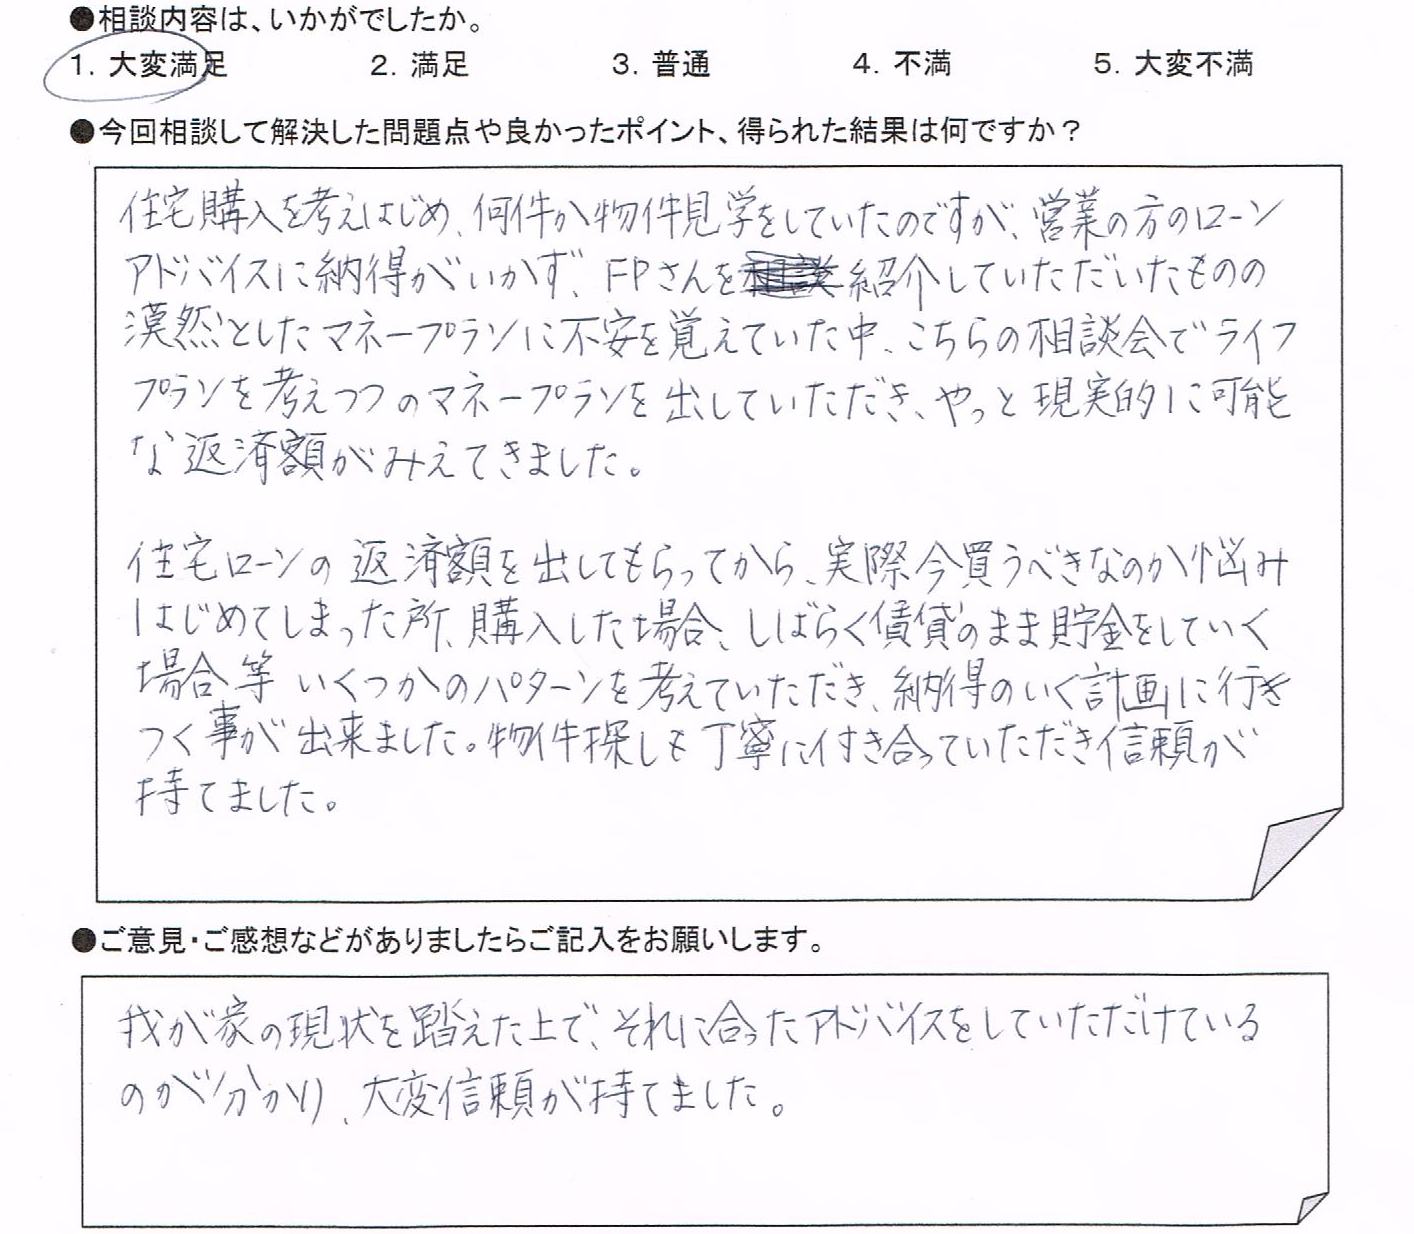 ●相談内容は、いかがでしたか。
1. 大変満足 2. 満足 3. 普通 4. 不満 5. 大変不満
●今回相談して解決した問題点や良かったポイント、得られた結果は何ですか？
住宅購入を考えはじめ、何件か物件見学をしていたのですが、営業の方のローン
アドバイスに納得がいかず、FPさんを紹介していただいたものの
漠然としたマネープランに不安を覚えていた中、こちらの相談会でライフ
プランを考えつつのマネープランを出していただき、やっと現実的に可能
な返済額がみえてきました。
住宅ローンの返済額を出してもらってから、実際今買うべきなのか悩み
はじめてしまった所、購入した場合、しばらく賃貸のまま貯金をしていく
場合等 いくつかのパターンを考えていただき、納得のいく計画に行き
つく事が出来ました。物件探しも丁寧に付き合っていただき信頼が
持てました。
●ご意見・ご感想などがありましたらご記入をお願いします。
我が家の現状を踏えた上で、それに合ったアドバイスをしていただけている
のが分かり、大変信頼が持てました。